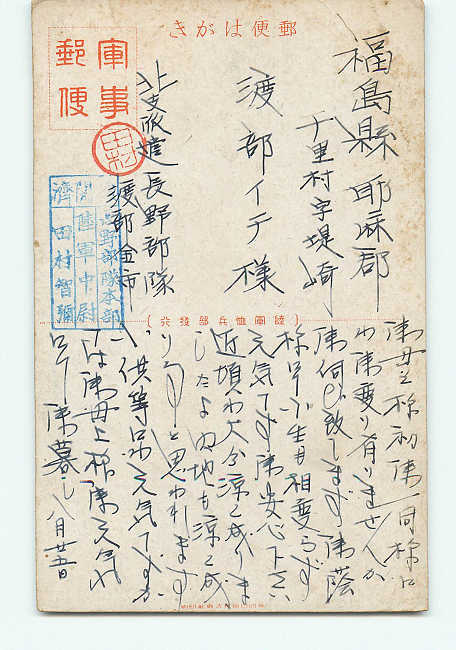 郵便はがき
軍事
郵便
田村
福島縣耶麻郡
千里村字堤崎
渡部イチ様
北支派遣長野部隊
渡部金市
閲 長野部隊本部
陸軍中尉
濟 田村智彌
(陸軍恤兵部發行)
御母上様初御一同様に
わ御変り有りませんか
御伺ひ致します 御蔭
様で小生も相変らず
元気です御安心下さい
近頃わ大分涼く成りま
したよ内地も涼く成
りと思われます
小供等わ元気ですか
では御母上様御元気で
御暮し八月廿五日